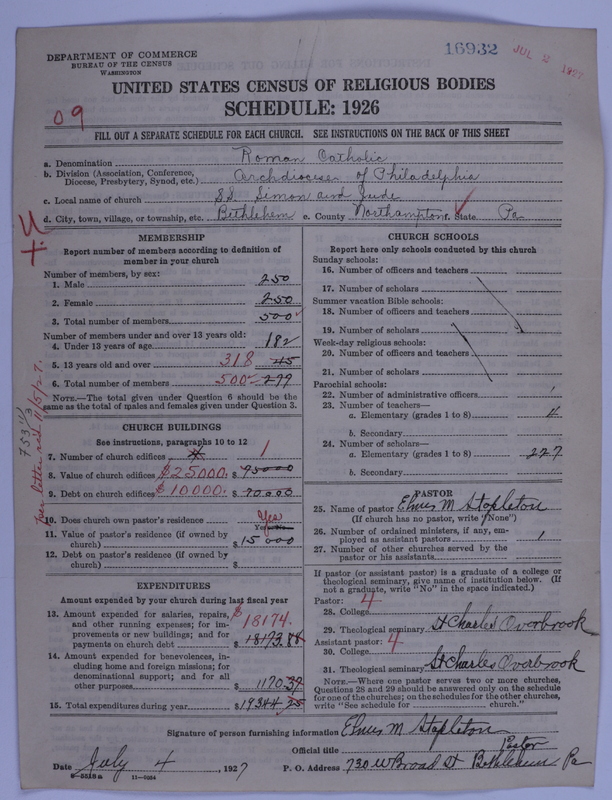 DEPARTMENT OF COMMERCE
BUREAU OF THE CENSUS
WASHINGTON
16932 JUL 2 1927
UNITED STATES CENSUS OF RELIGIOUS BODIES
SCHEDULE: 1926
09
FILL OUT A SEPARATE SCHEDULE FOR EACH CHURCH. SEE INSTRUCTIONS ON THE BACK OF THIS SHEET
a. Denomination Roman Catholic
b. Division (Association, Conference, Diocese, Presbytery, Synod, etc.) Archdiocese of Philadelphia
c. Local name of church S.S. Simon and Jude
d. City, town, village, or township, etc. Bethlehem e. County Northampton f. State Pa
MEMBERSHIP
Report number of members according to definition of
member in your church
Number of members, by sex:
1. Male 250
2. Female 250
3. Total number of members 500
Number of members under and over 13 years old:
4. Under 13 years of age 182
5. 13 years old and over 318 45
6. Total number of members 500 277
NOTE.—The total given under Question 6 should be the
same as the total of males and females given under Question 3.
per letter recd. 11/5/27.
CHURCH BUILDINGS
See instructions, paragraphs 10 to 12
7. Number of church edifices 1
8. Value of church edifices $25000. $ 75000
9. Debt on church edifices $10000. $ 70.000
10. Does church own pastor's residence Yes
11. Value of pastor's residence (if owned by
church) $ 15000
12. Debt on pastor's residence (if owned by
church) $
EXPENDITURES
Amount expended by your church during last fiscal year
13. Amount expended for salaries, repairs,
and other running expenses; for im-
provements or new buildings; and for
payments on church debt $18174. $ 18173.88
14. Amount expended for benevolences, in-
cluding home and foreign missions; for
denominational support; and for all
other purposes $ 1170.37
15. Total expenditures during year $19344.25
CHURCH SCHOOLS
Report here only schools conducted by this church
Sunday schools:
16. Number of officers and teachers
17. Number of scholars
Summer vacation Bible schools:
18. Number of officers and teachers
19. Number of scholars
Week-day religious schools:
20. Number of officers and teachers
21. Number of scholars
Parochial schools:
22. Number of administrative officers 1
23. Number of teachers—
a. Elementary (grades 1 to 8) 4
b. Secondary
24. Number of scholars—
a. Elementary (grades 1 to 8) 227
b. Secondary
PASTOR
25. Name of pastor Elmer M Stapleton
(If church has no pastor, write "None")
26. Number of ordained ministers, if any, em-
ployed as assistant pastors 1
27. Number of other churches served by the
pastor or his assistants
If pastor (or assistant pastor) is a graduate of a college or
theological seminary, give name of institution below. (If
not a graduate, write "No" in the space indicated.)
Pastor: 4
28. College
29. Theological seminary St Charles Overbrook
Assistant pastor: 4
30. College
31. Theological seminary St Charles Overbrook
NOTE.—Where one pastor serves two or more churches,
Questions 28 and 29 should be answered only on the schedule
for one of the churches; on the schedules for the other churches,
write "See schedule for church."
Signature of person furnishing information Elmer M Stapleton
Official title Pastor
Date July 4, 1927 P. O. Address 730 W Broad St Bethlehem Pa
8-5518a 11-9564